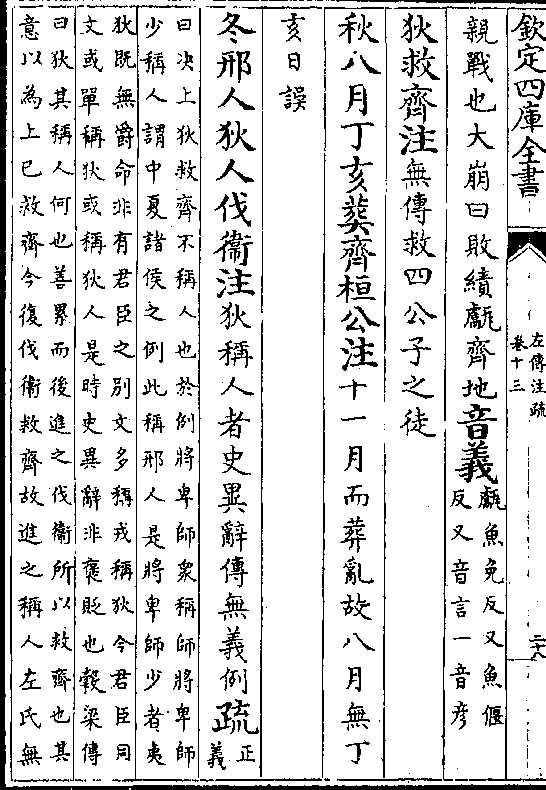 欽定四庫全書
左傳注疏
卷十三
二十八
親戰也大崩曰敗績甗齊地音義甗魚免反又魚偃
反又音言一音彦
狄救齊注無傳救四公子之徒
秋八月丁亥葬齊桓公注十一月而葬亂故八月無丁
亥日誤
冬邢人狄人伐衞注狄稱人者史異辭傳無義例疏正
義
曰决上狄救齊不稱人也於例將卑師衆稱師將卑師
少稱人謂中夏諸侯之例此稱邢人是將卑師少者夷
狄既無爵命非有君臣之别文多稱戎稱狄今君臣同
文或單稱狄或稱狄人是時史異辭非褒貶也榖梁傳
曰狄其稱人何也善累而後進之伐衛所以救齊也其
意以為上已救齊今復伐衛救齊故進之稱人左氏無